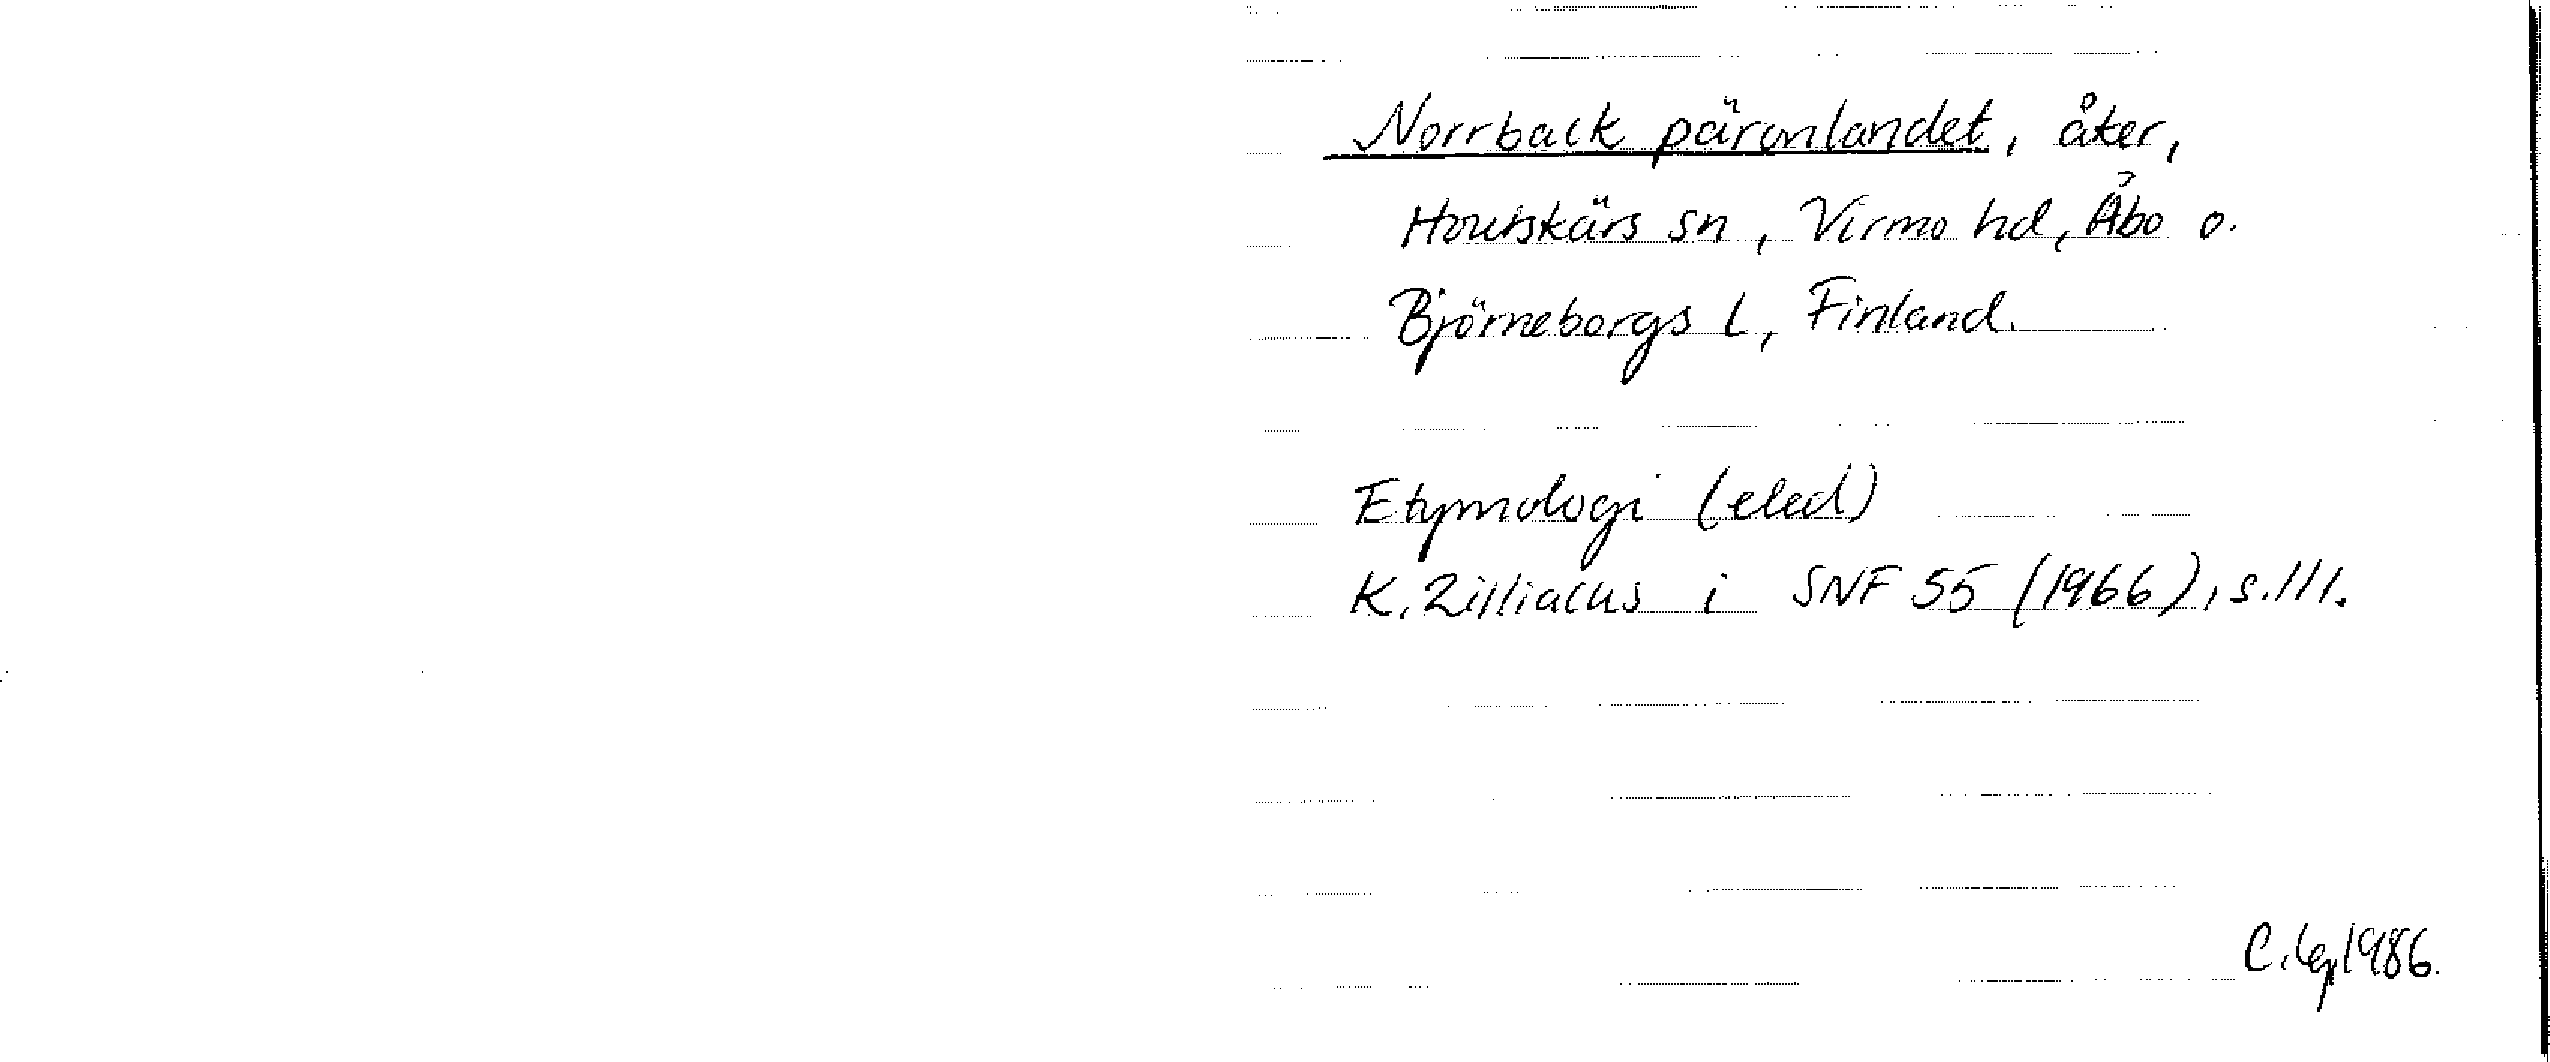 Norrback päronlandet, åker,
Houtskärs sn, Virmo hd, Åbo o.
Björneborgs l, Finland.
Etymologi (eled)
K. Zilliacus i SNF 55 (1966), s.111.
1986.